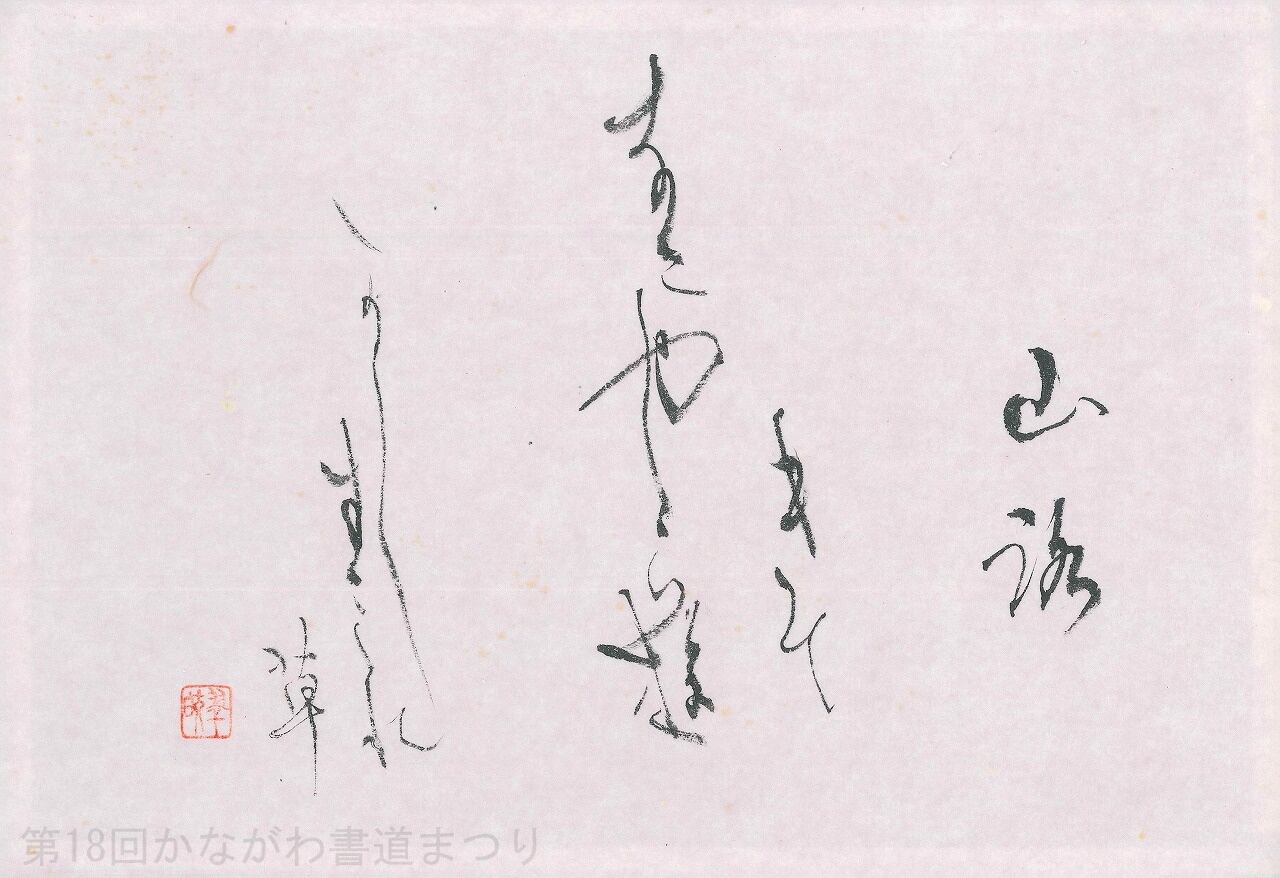 山路
きて
なにやら遊
かし
すみれ
草
第18回かながわ書道まつり